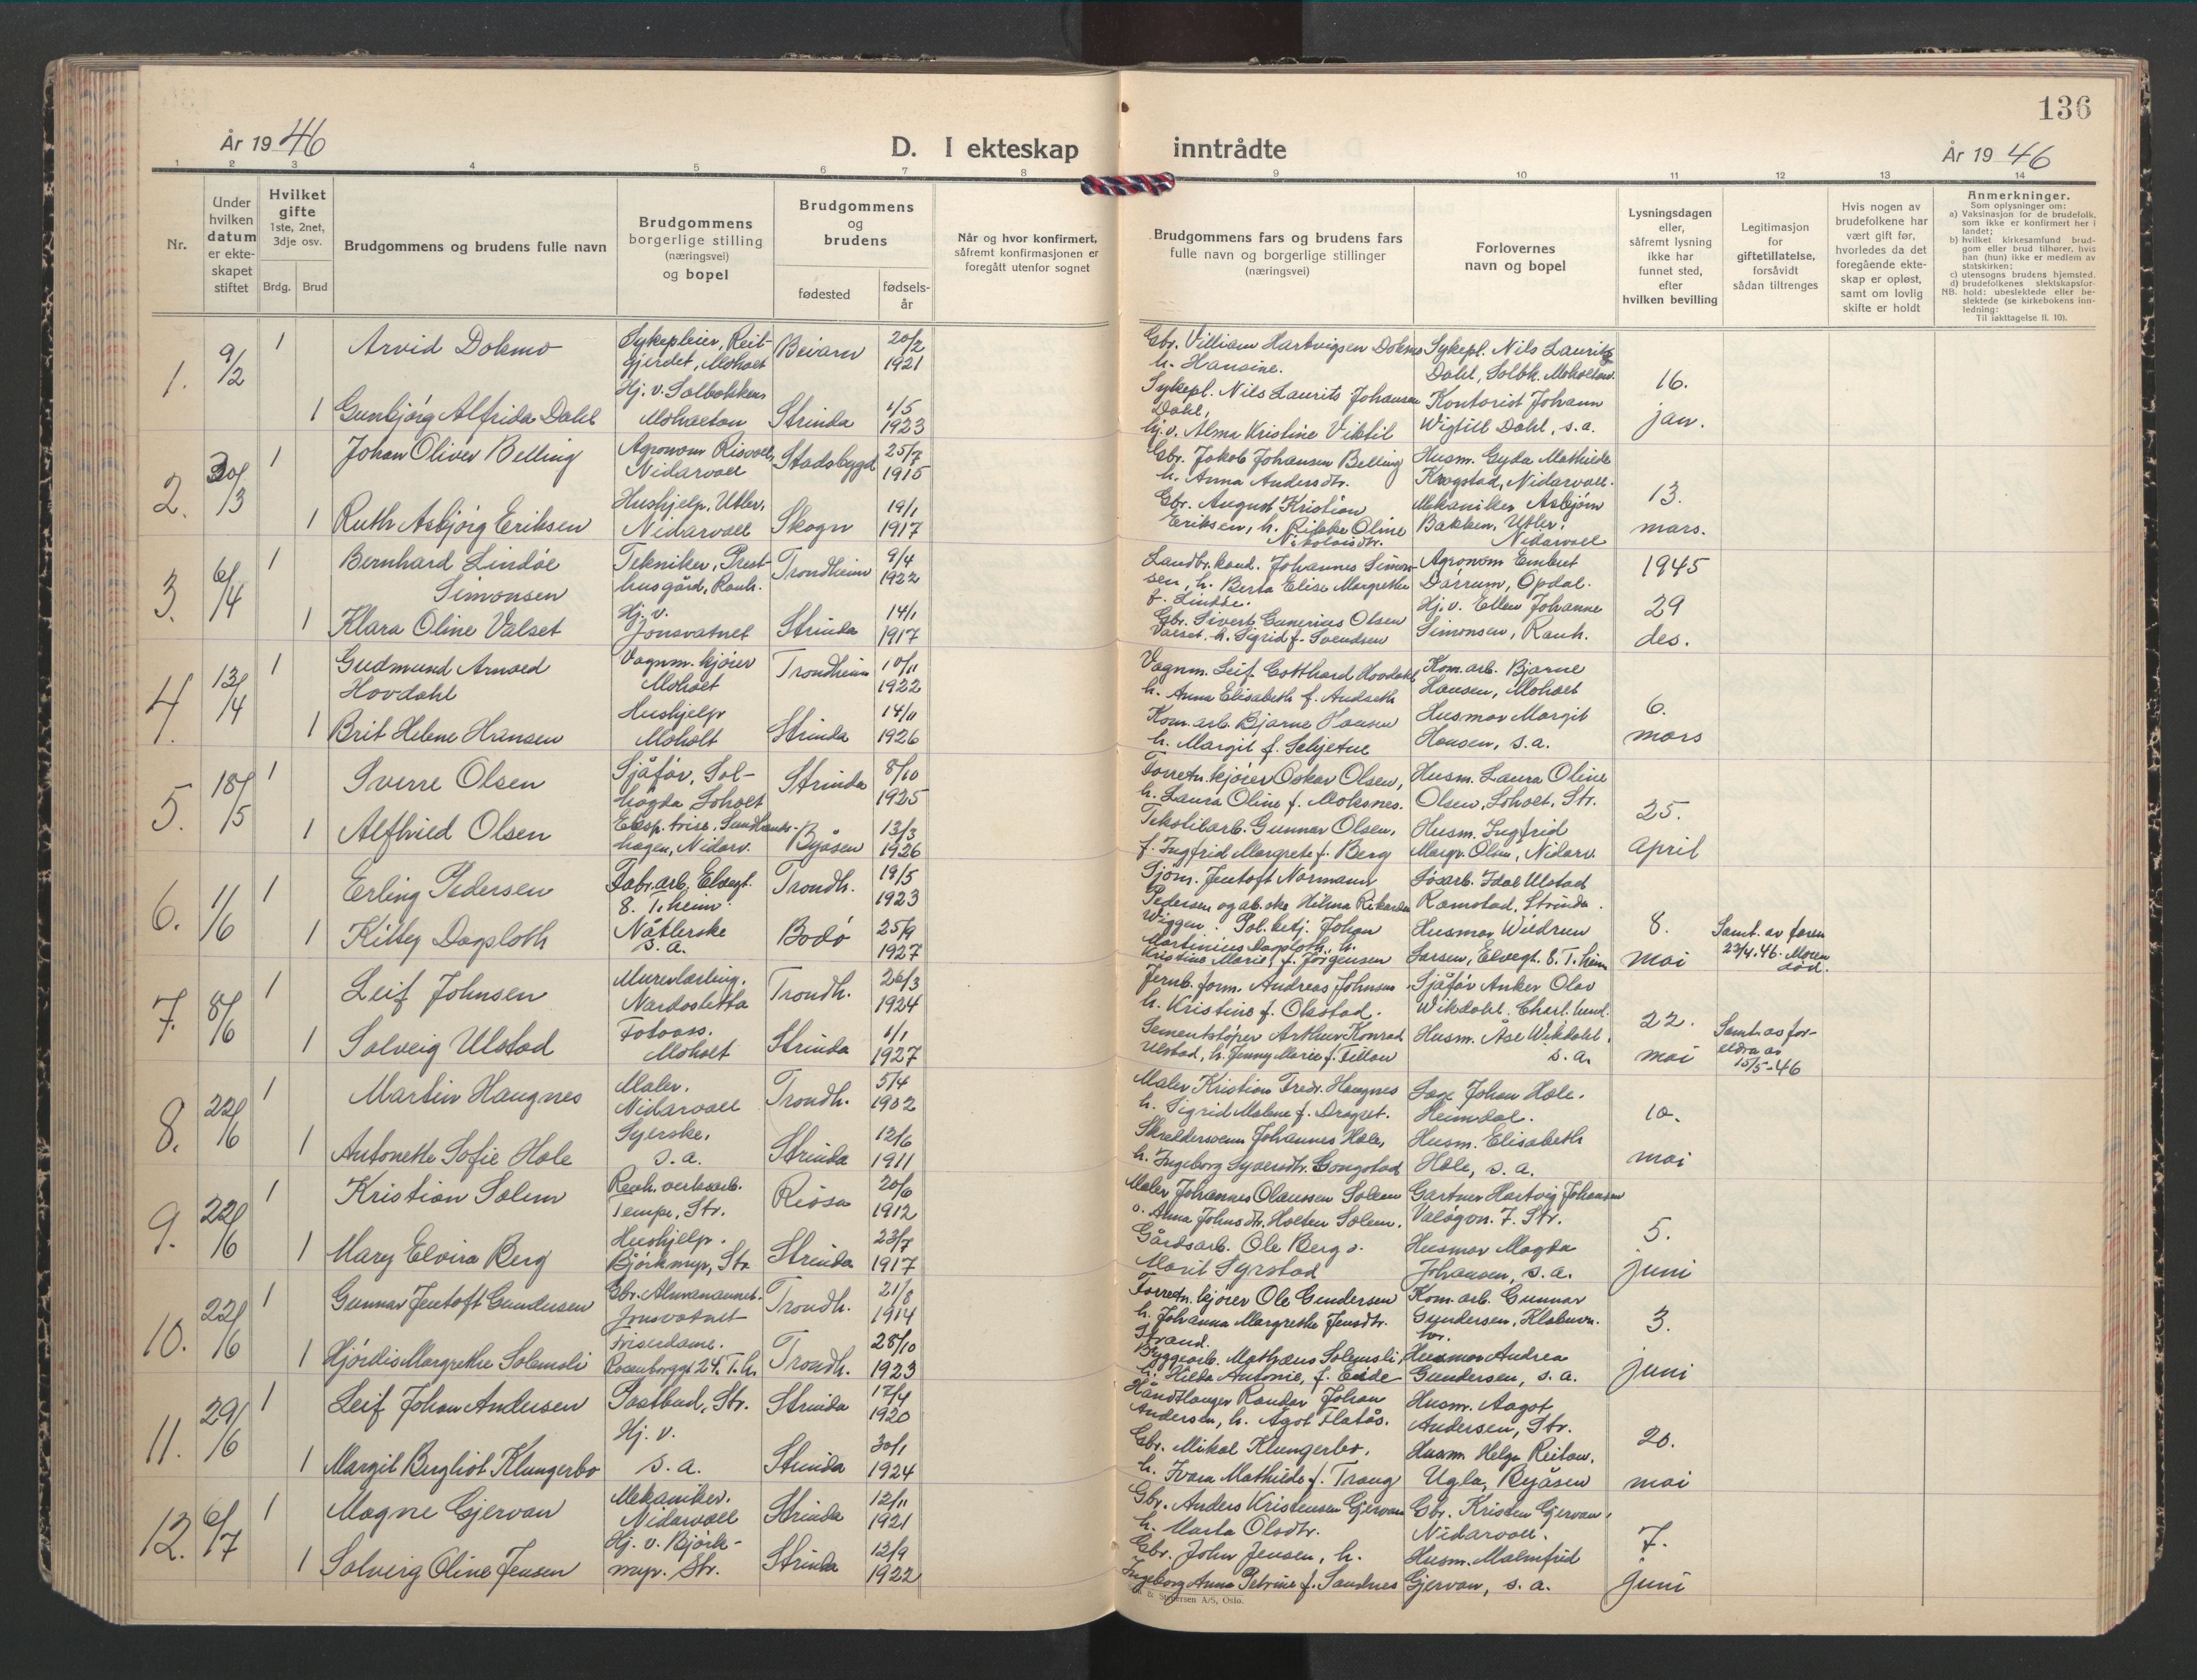 136
År 1946
D. I ekteskap inntrådte
År 1946
1 2 3 4 5 6 7 8 9 10 11 12 13 14
Nr.
Under hvilken datum er ekteskapet stiftet
Hvilket gifte 1ste, 2net, 3dje osv.
Brdg. Brud
Brudgommens og brudens fulle navn
Brudgommens borgerlige stilling (næringsvei) og bopel
Brudgommens og brudens
fødested
fødselsår
Når og hvor konfirmert, såfremt konfirmasjonen er foregått utenfor sognet
Brudgommens fars og brudens fars fulle navn og borgerlige stillinger (næringsvei)
Forlovernes navn og bopel
Lysningsdagen eller, såfremt lysning ikke har funnet sted, efter hvilken bevilling
Legitimasjon for giftetillatelse, forsåvidt sådan tiltrenges
Hvis nogen av brudefolkene har vært gift før, hvorledes da det foregående ekteskap er opløst, samt om lovlig skifte er holdt
Anmerkninger.
Som oplysninger om:
a) Vaksinasjon for de brudefolk, som ikke er konfirmert her i landet;
b) hvilket kirkesamfund brudgom eller brud tilhører, hvis han (hun) ikke er medlem av statskirken;
c) utensogns brudens hjemsted.
d) brudefolkenes slektskapsforhold: ubeslektede eller beslektede (se kirkebokens innledning:
NB.
Til iakttagelse II. 10).
1. 9/2 1 Arvid Dokmo
Sykepleier, Reitgjerdet, Moholt
Beiarn 20/2 1921
Gbr. Villiam Hartvigsen Dokmo
h. Hansine.
Sykepl. Nils Laurits
Dahl, Solbk. Moholtan.
16. jan.
1 Gunbjørg Alfrida Dahl
Hj. v. Solbakken
Moholtan
Strinda 1/5 1923
Sykepl. Nils Laurits Johansen
Dahl,
hj.v. Alma Kristine Viktil
Kontorist Johann
Wigtill Dahl, s.a.
2. 30/3 1 Johan Oliver Belling
Agronom Risvoll,
Nidarvoll
Stadsbygd 25/7 1915
Gbr. Jakob Johansen Belling
h. Anna Andersdtr.
Husm. Gyda Mathilde
Krogstad, Nidarvoll.
13. mars.
1 Ruth Asbjørg Eriksen
Hushjelp, Utler,
Nidarvoll
Skogn 19/1 1917
Gbr. August Kristian
Eriksen, h. Rikke Oline
Nikolaisdtr.
Mekaniker Asbjørn
Bakken, Utler,
Nidarvoll
3. 6/4 1 Bernhard Lindøe
Simonsen
Tekniker, Presthusgård, Ranh.
Trondheim 9/4 1922
Landbr. kand. Johannes Simonsen, h. Berta Elise Margrethe
f. Lindøe.
Agronom Embret
Dørrum, Opdal.
1945
29 des.
1 Klara Oline Valset
Hj. v.
Jonsvatnet
Strinda 14/1 1917
Gbr. Sivert Gunerius Olsen
Valset. h. Sigrid f. Svendsen
Hj. v. Ellen Johanne
Simonsen, Ranh.
4. 13/4 1 Gudmund Arnold
Hovdahl
Vognm. kjører
Moholt
Trondheim 10/11 1922
Vognm. Leif Gotthard Hovdahl
h. Anna Elisabeth f. Andseth
Kom. arb. Bjarne
Hansen, Moholt
6. mars
1 Brit Helene Hansen
Hushjelp
Moholt
Strinda 14/11 1926
Kom. arb. Bjarne Hansen
h. Margit f. Schjetne
Husmor Margit
Hansen, s.a.
5. 18/5 1 Sverre Olsen
Sjåfør, Solhøgda Loholt
Strinda 8/10 1925
Forretn. kjører Oskar Olsen,
h. Laura Oline f. Moksnes.
Husm. Laura Oline
Olsen, Loholt, Str.
25. april
1 Alfhild Olsen
Eksp. trise, Sundlandshagen, Nidarv.
Byåsen 13/3 1926
Tekstilarb. Gunnar Olsen,
f. Ingfrid Margrete f. Berg
Husm. Ingfrid
Margr. Olsen, Nidarv.
6. 1/6 1 Erling Pedersen
Fabr. arb. Elvegt.
8. T.heim.
Trondh. 19/5 1923
Sjøm. Jentoft Normann
Pedersen og ab. ske Hilma Rikarda
Wiggen.
Løsarb. Idar Ulstad
Ramstad, Strinda.
8. mai
Samt. av faren
23/4.46. Moren
død.
1 Kitty Dagsloth
Nåtlerske
s.a.
Bodø 25/9 1927
Pol. betj. Johan
Martinius Dagsloth, h.
Kristine Marie, f. Jørgensen
Husmor Wildrun
Larsen, Elvegt. 8. T.heim
7. 8/6 1 Leif Johnsen
Murerlærling.
Nardosletta
Trondh. 26/3 1924
Jernb. form. Andreas Johnsen
h. Kristine f. Olastad.
Sjåfør Anker Olav
Wikdahl, Charl.lund.
22. mai
Samt. av foreldra av
15/5-46
1 Solveig Ulstad
Fotoass.
Moholt
Strinda 1/1 1927
Sementstøper Arthur Konrad
Ulstad, h. Jenny Marie f. Tillan
Husm. Åse Wikdahl,
s.a.
8. 22/6 1 Martin Haugnes
Maler.
Nidarvoll
Trondh. 5/4 1902
Maler Kristian Fredr. Haugnes
h. Sigrid Malene f. Dragset.
Johan Hole.
Heimdal.
10. mai
1 Antonette Sofie Hole
Syerske.
s.a.
Strinda 12/6 1911
Skreddersvenn Johannes Hole,
h. Ingeborg Syversdtr. Gongstad
Husm. Elisabeth
Hole, s.a.
9. 22/6 1 Kristian Solem
Renh. verksarb.
Tempe, Str.
Rissa 20/6 1912
Maler Johannes Olaussen Solem
o. Anna Johnsdtr. Holten Solem.
Gartner Hartvig Johansen
Valøyvn. 7. Str.
5. juni
1 Mary Elvira Berg
Hushjelp.
Bjørkmyr, Str.
Strinda 23/7 1917
Gårdsarb. Ole Berg o.
Marit Syrstad
Husmor Magda
Johansen, s.a.
10. 22/6 1 Gunnar Jentoft Gundersen
Gbr.
Jonsvatnet
Trondh. 21/8 1914
Forretn. kjører Ole Gundersen
h. Johanna Margrethe Jensdtr.
Strand.
Kom. arb. Gunnar
Gundersen,
3. juni
1 Hjørdis Margrethe Solemsli
Frisedame.
Rosenborggt 24. T.h.
Trondh. 28/10 1923
Byggearb. Mathæus Solemsli,
h. Hilda Antonie, f. Eide
Husmor Andrea
Gundersen, s.a.
11. 29/6 1 Leif Johan Andersen
Postbud, Str.
Strinda 17/4 1920
Håndtlanger Randor Johan
Andersen, h. Agot Flatås.
Husm. Aagot
Andersen, Str.
20. mai
1 Margit Bergliot Klungerbo
Hj. v.
s.a.
Strinda 30/1 1924
Gbr. Mikal Klungerbo,
h. Ivara Mathilde f. Traug
Husm. Helga Reitan,
Ugla, Byåsen
12. 6/7 1 Magne Gjervan
Mekaniker.
Nidarvoll
Strinda 12/11 1921
Gbr. Anders Kristensen Gjervan
h. Marta Olsdtr.
Gbr. Kristen Gjervan,
Nidarvoll.
7. juni
1 Solveig Oline Jensen
Hj. v. Bjørkmyr. Str.
Strinda 12/9 1922
Gbr. John Jensen, h.
Ingeborg Anna Petrine f. Sandnes
Husm. Malmfrid
Gjervan, s.a.
A/S, Oslo.